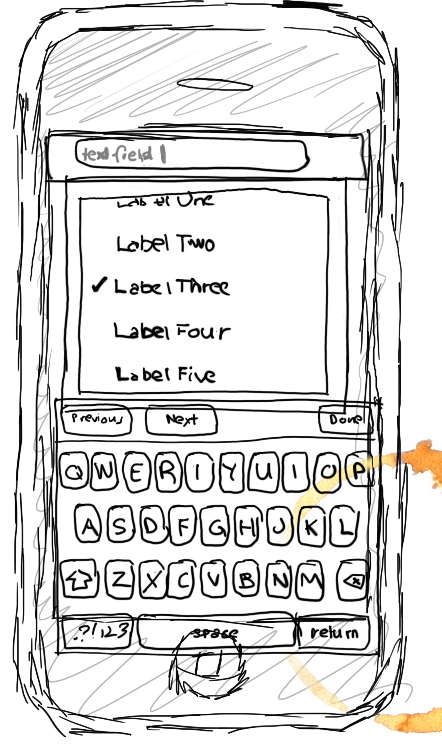 text field
Label One
Label Two
✓ Label Three
Label Four
Label Five
Previous Next Done
Q W E R I Y U I O P
A S D F G H J K L
Z X C V B N M
.?!123 space return